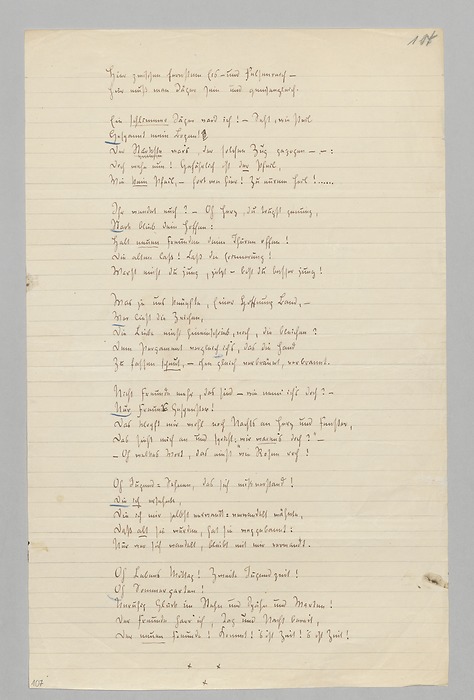 Hier zwischen fernstem Eis- und Felsenreich —
Hier muß man Jäger sein und gemsengleich.
Ein schlimmer Jäger ward ich! — Seht, wie steil
Gespannt mein Bogen!
Der Stärkste war's, der solchen Zug gezogen — —:
Doch wehe nun! Gefährlich ist der Pfeil,
Wie kein Pfeil, — fort von hier! Zu eurem Heil!.....
Ihr wendet euch? — Oh Herz, du trugst genung,
Stark blieb dein Hoffen:
Halt neuen Freunden deine Thüren offen!
Die alten laß! Laß die Erinnerung!
Warst einst du jung, jetzt — bist du besser jung!
Was je uns knüpfte, Einer Hoffnung Band, —
Wer liest die Zeichen,
Die Liebe einst hineinschrieb, noch, die bleichen?
Dem Pergament vergleich ich's, das die Hand
Zu fassen scheut, — ihm gleich verbräunt, verbrannt.
Nicht Freunde mehr, das sind — wie nenn ich's doch? —
Nur Freunds-Gespenster!
Das klopft mir wohl noch Nachts an Herz und Fenster,
Das sieht mich an und spricht: „wir waren's doch?" —
— Oh welkes Wort, das einst wie Rosen roch!
Oh Jugend-Sehnen, das sich mißverstand!
Die ich ersehnte,
Die ich mir selbst verwandt-verwandelt wähnte,
Daß alt sie wurden, hat sie weggebannt:
Nur wer sich wandelt, bleibt mit mir verwandt.
Oh Lebens Mittag! Zweite Jugendzeit!
Oh Sommergarten!
Unruhig Glück im Stehn und Spähn und Warten!
Der Freunde harr' ich, Tag und Nacht bereit,
Der neuen Freunde! Kommt! 's ist Zeit! 's ist Zeit!
107